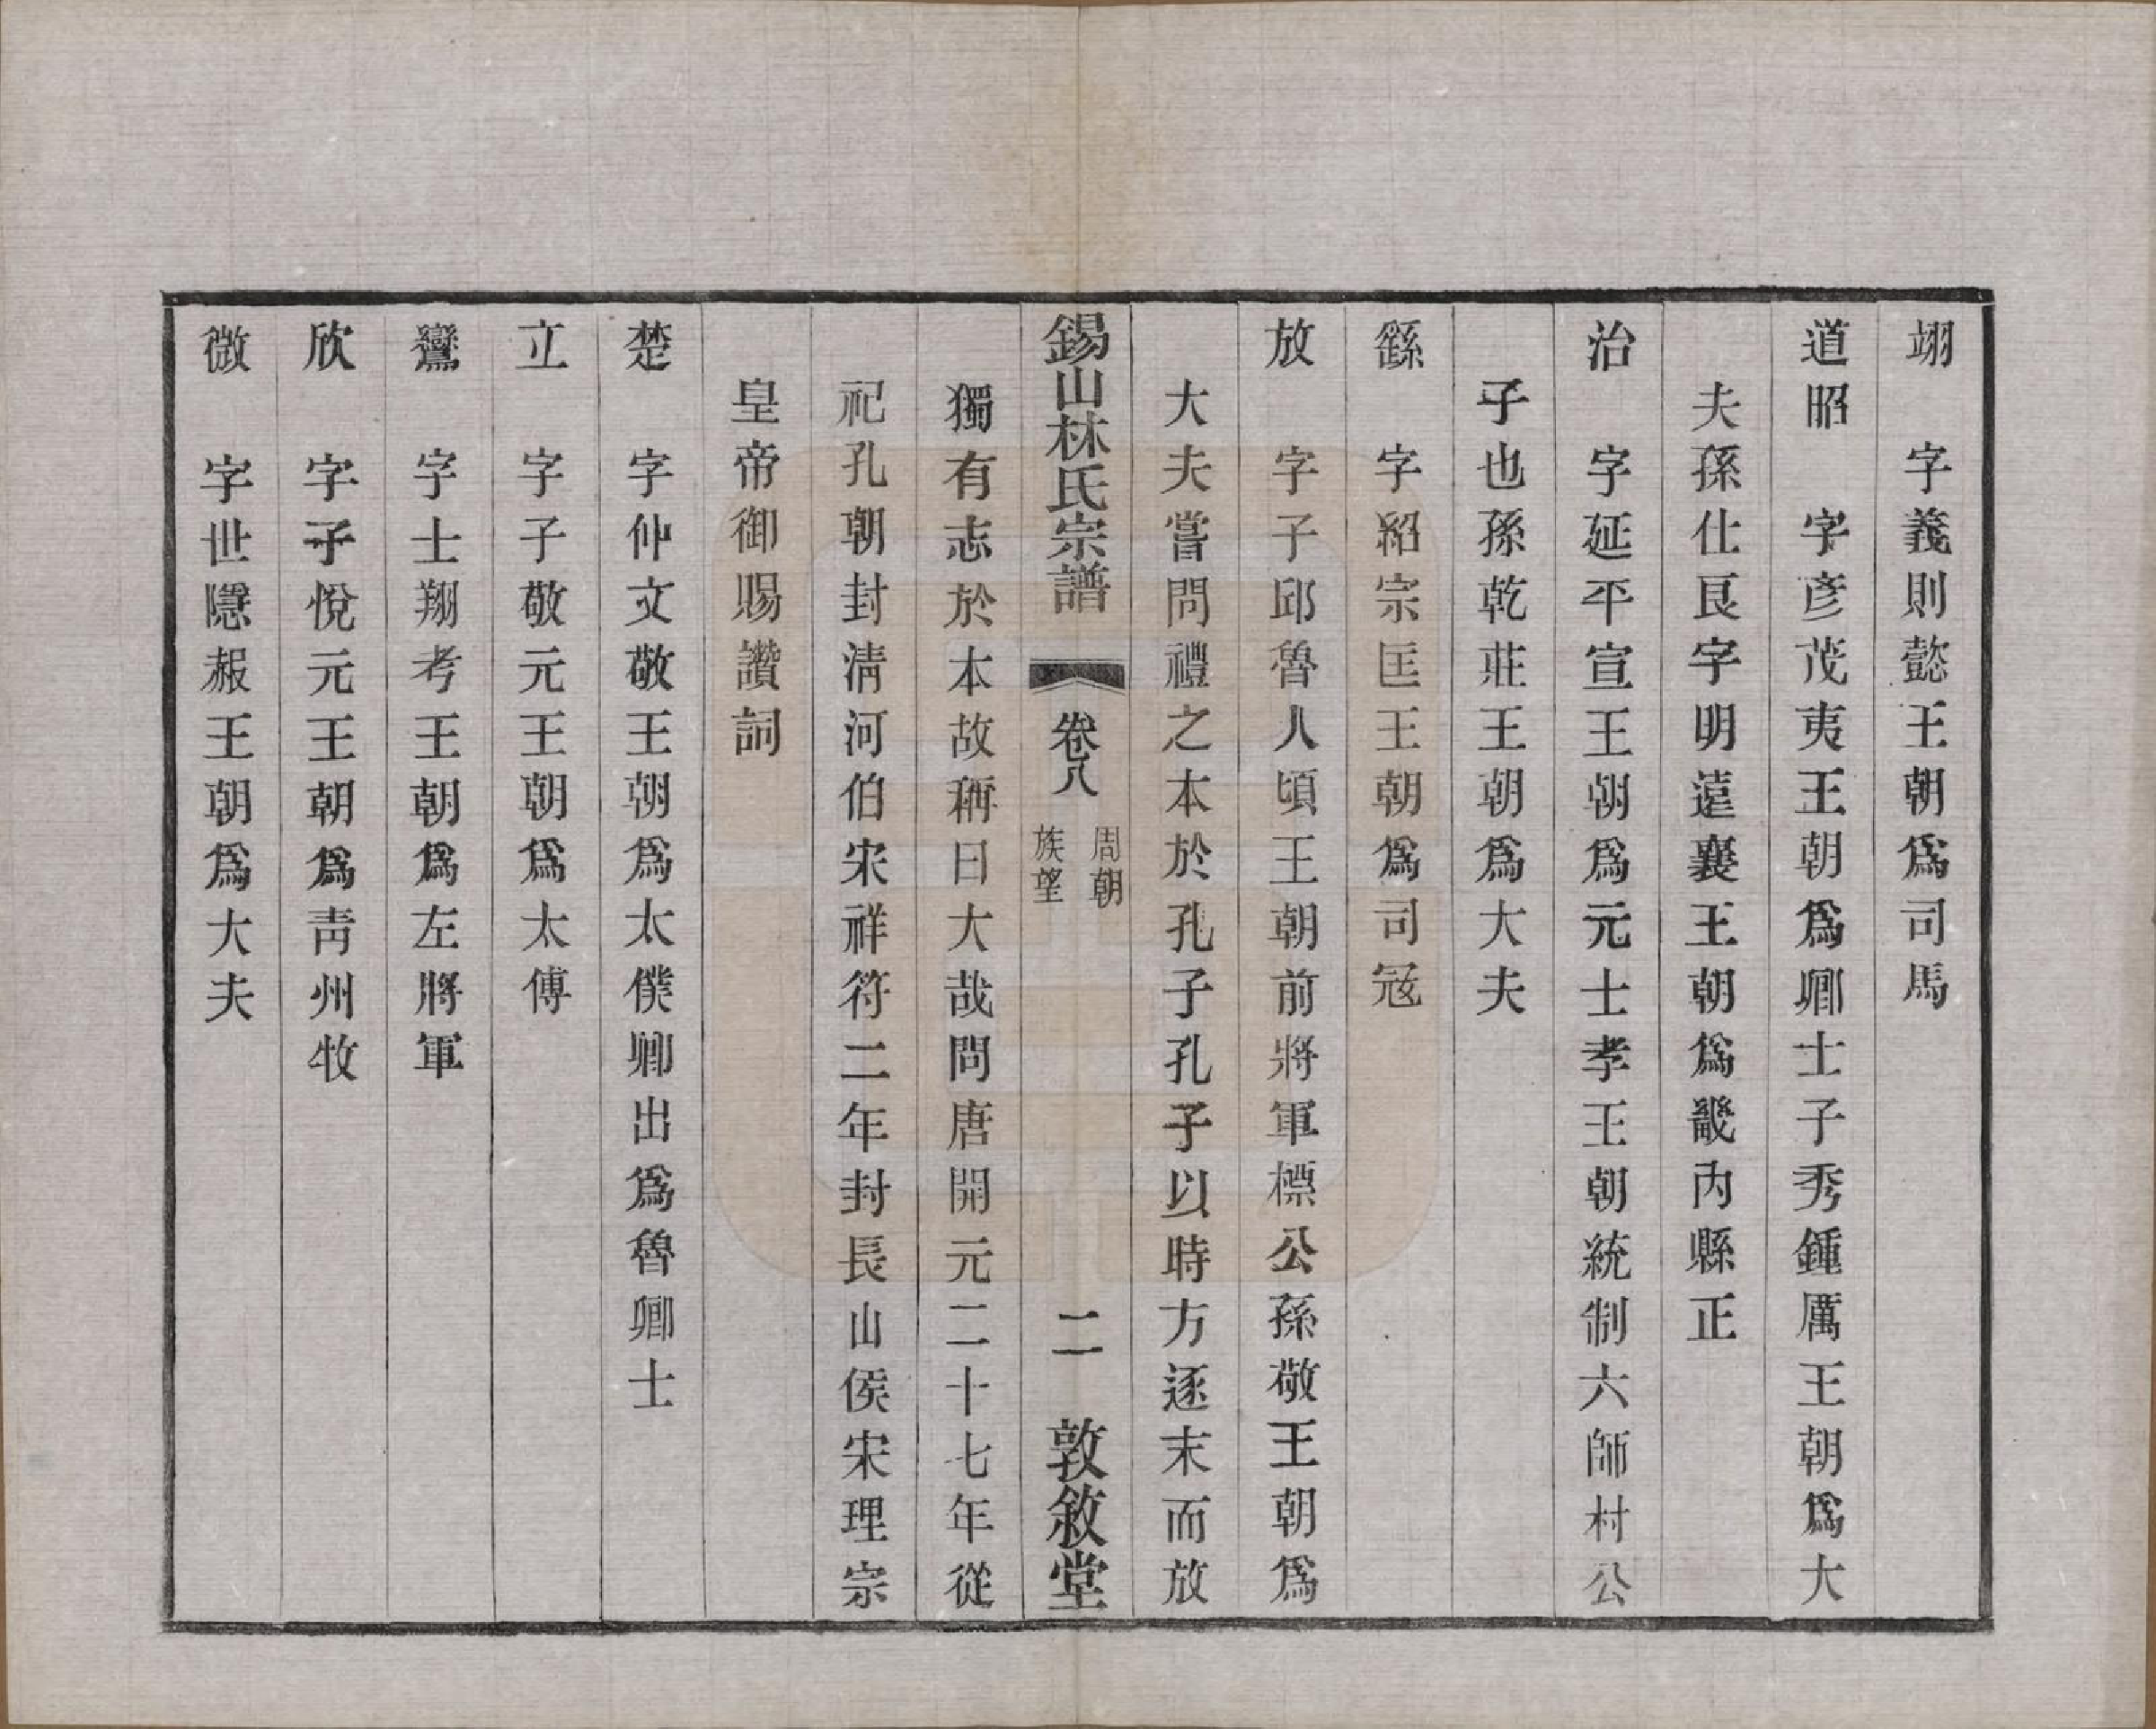 翊　字義則懿王朝爲司馬
道昭　字彥茂夷王朝爲卿士子秀鍾厲王朝爲大
夫孫仕艮字明遠襄王朝爲畿內縣正
治　字延平宣王朝爲元士孝王朝統制六師村公
子也孫乾莊王朝爲大夫
繇　字紹宗匡王朝爲司冦
放　字子邱魯人頃王朝前將軍標公孫敬王朝爲
大夫嘗問禮之本於孔子孔子以時方逐末而放
錫山林氏宗譜　卷八　周朝族望　二　敦敘堂
獨有志於本故稱曰大哉問唐開元二十七年從
祀孔朝封淸河伯宋祥符二年封長山侯宋理宗
皇帝御賜讚詞
楚　字仲文敬王朝爲太僕卿出爲魯卿士
立　字子敬元王朝爲太傅
鸞　字士翔考王朝爲左將軍
欣　字子悅元王朝爲靑州牧
微　字世隱赧王朝爲大夫